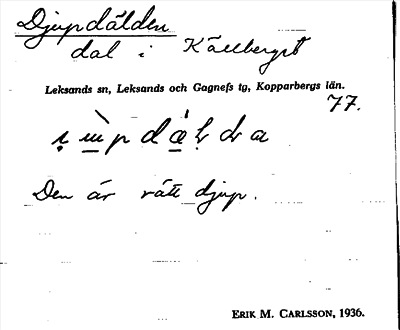 Djupdälden
dal i Källberget
Leksands sn, Leksands och Gagnefs tg, Kopparbergs län.
77.
Den är rätt djup.
ERIK M. CARLSSON, 1936.